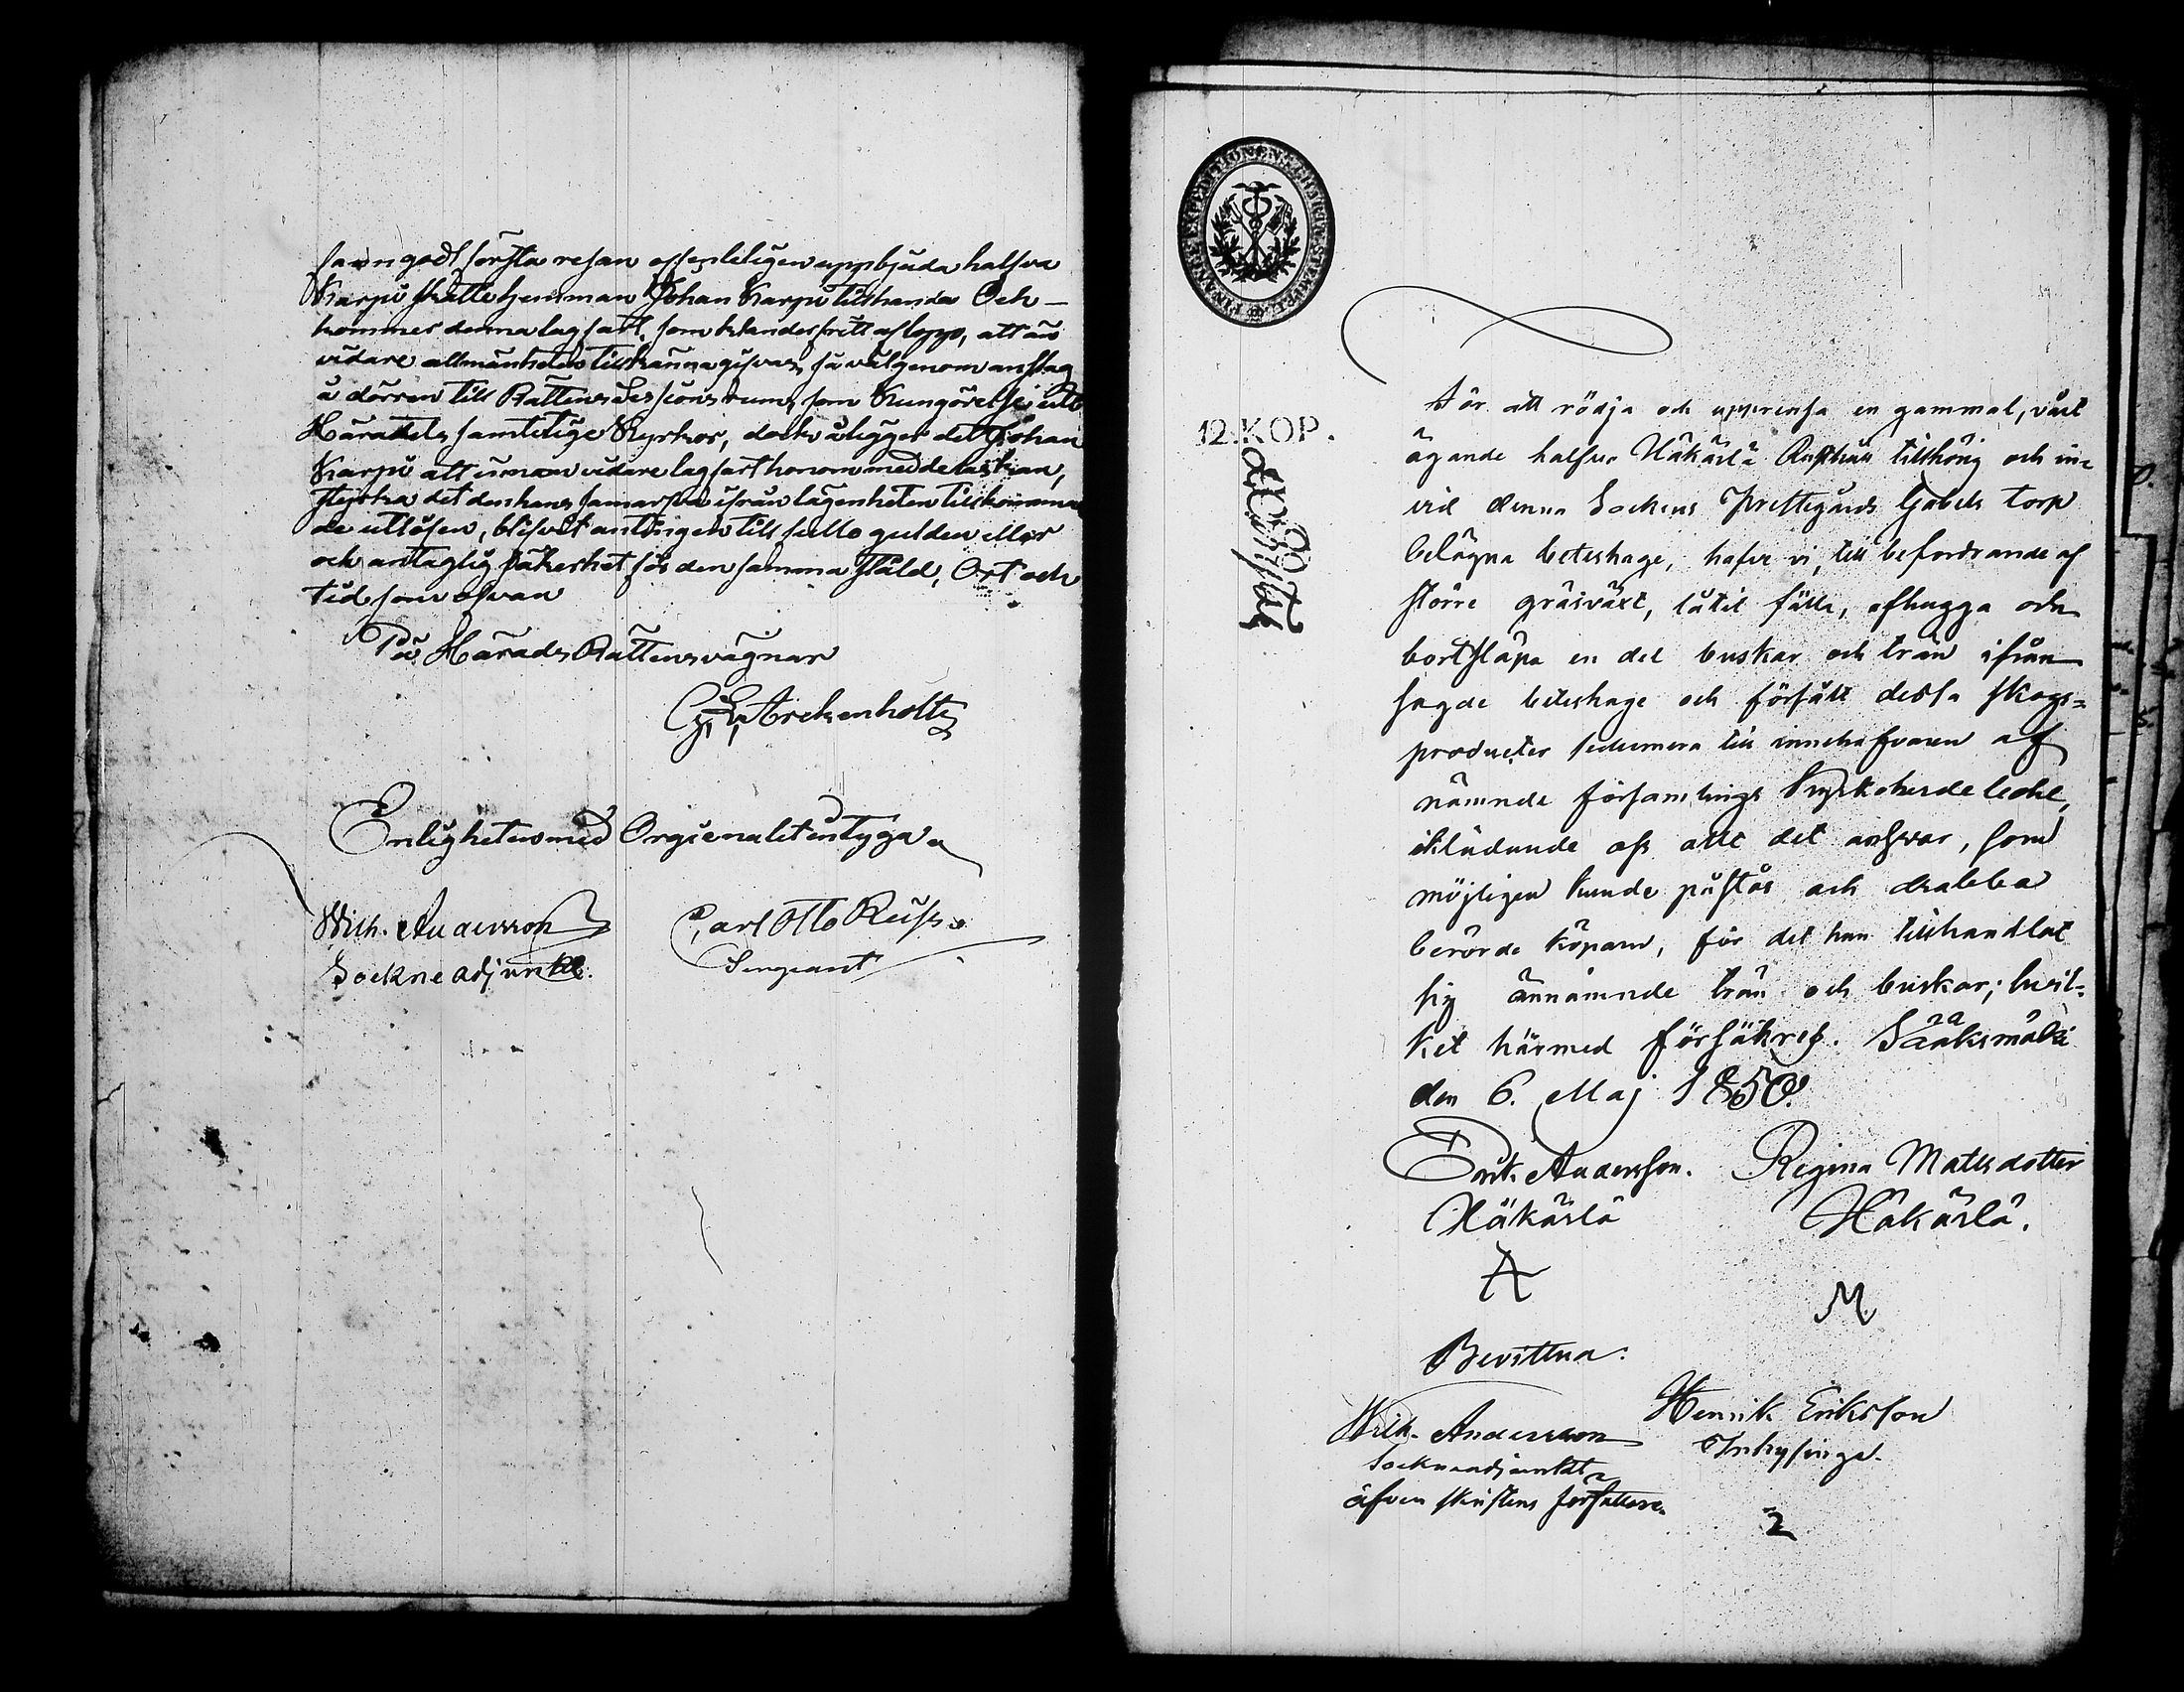 fann godt första resan offenteligen uppbjuda halfva
Karpu Skattehemman Johan Karpu tillhanda Och
kommer denna lagfart, som klanderfritt aflopp, att än
vidare allmänheten tillkännagifvas så väl genom anslag
å dörren till Rättens Sessions rum, som Kungörelse uti
Häradets samtelige Kyrkor, dock åligger det Johan
Karpu att innan vidare lagfart honom meddelas kan,
styrka det den hans samarfva ifrån lägenheten tillkomman
de utlösen, blifvit antingen till fullo gulden eller
och antaglig säkerhet för den samma stäld, Ort och
tid som ofvan
På Härads Rättens vägnar
Arckenholtz
Enligheten med Orgienalet intyga
Wilh. Andersson Carl Otto Reuss
Sockne adjunkt. Sergeant
FINANCE EXPEDITIONENS CHARTÆ STEMPEL
12. KOP.
För att rödja och upprensa en gammal, vårt
ägande halfva Häkärlä Rusthåll tillhörig och in-
vid denna Sockens Prestegårds torp
belägna beteshage, hafva vi, till befordrande af
större gräsväxt, låtit fälla, afhugga och
bortsläpa en del buskar och trän ifrån
sagde beteshage och försålt dessa skogs=
producter sedermera till innehafvaren af
nämnde församlings Kyrkoherde ,
iklädande oss allt det ansvar, som
möjligen kunde påstås och drabba
berörde köpare, för det han tillhandlat
sig ännämnde trän och buskar; hvil-
ket härmed försäkras. Sääksmäki
den 6. Maj 1850.
Erik Andersson. Regina Mattsdotter
Häkärlä Häkärlä.
A M.
Bevittna:
Wilh. Andersson Henrik Eriksson
Sockneadjunkt Inhysinge.
äfven skriftens författare.
2